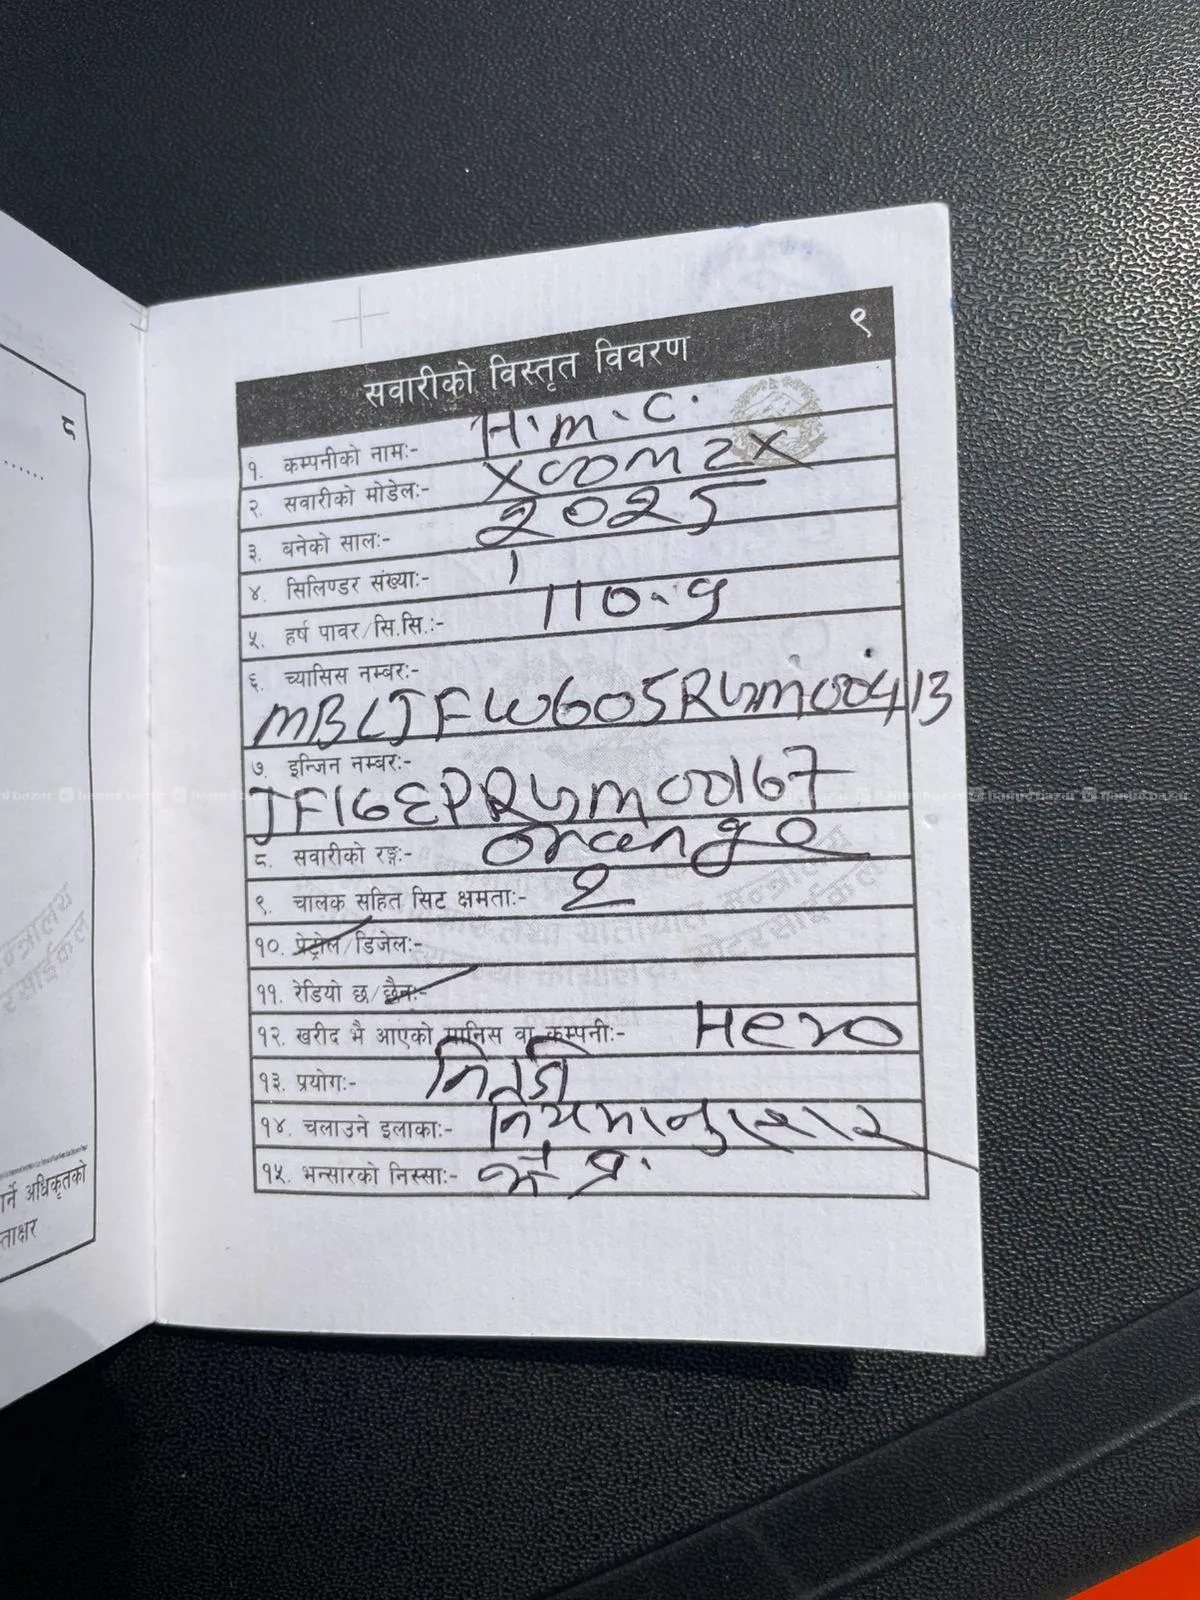 ९
सवारीको विस्तृत विवरण
१. कम्पनीको नाम:- H.M.C.
२. सवारीको मोडेल:- XOOM ZX
३. बनेको साल:- 2025
४. सिलिण्डर संख्या:- 1
५. हर्ष पावर/सि.सि.:- 110.9
६. च्यासिस नम्बर:-
७. इन्जिन नम्बर:-
८. सवारीको रङ्ग:- orange
९. चालक सहित सिट क्षमता:- 2
१०. पेट्रोल/डिजेल:-
११. रेडियो छ/छैन:-
१२. खरीद भै आएको मानिस वा कम्पनी:- Hero
१३. प्रयोग:- निजी
१४. चलाउने इलाका:- नियमानुसार
१५. भन्सारको निस्सा:-
८
र्ने अधिकृतको
ताक्षर
hamrobazar